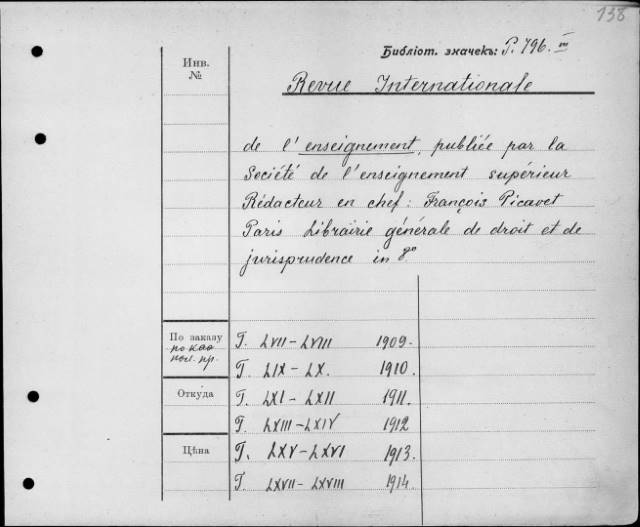 138
Библіот. значекъ: P. 796. III
Инв.
№
Revue Internationale
de l'enseignement, publiée par la
Société de l'enseignement supérieur
Rédacteur en chef: François Picavet
Paris Librairie générale de droit et de
jurisprudence in 8°
По заказу
Откуда
Цѣна
T. LVII - LVIII 1909.
T. LIX - LX. 1910.
T. LXI - LXII 1911.
T. LXIII - LXIV 1912
T. LXV - LXVI 1913.
T. LXVII - LXVIII 1914.